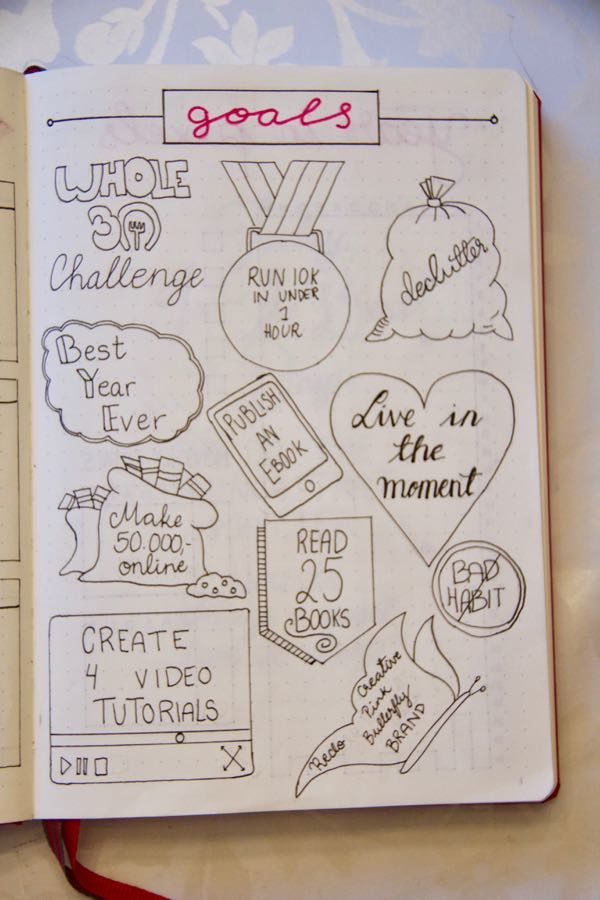 goals
WHOLE
30
Challenge
RUN 10K
IN UNDER
1
HOUR
declutter
Best
Year
Ever
PUBLISH
AN
E-BOOK
Live in
the
moment
Make
50.000,-
online
READ
25
BOOKS
BAD
HABIT
CREATE
4 VIDEO
TUTORIALS
Redo
Creative
Pink
Butterfly
BRAND